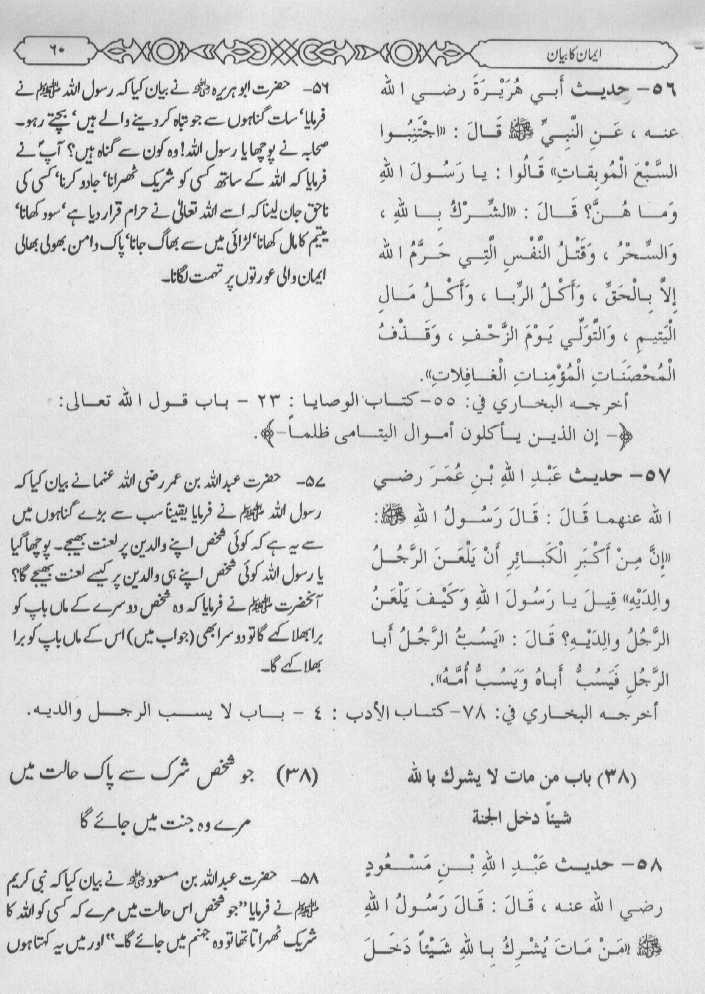 ایمان کا بیان
٦٠
٥٦- حديث أبي هُرَيْرَةَ رضي الله
عنه ، عَنِ النَّبِيِّ ﷺ قَالَ : «اجْتَنِبُوا
السَّبْعَ الْمُوبِقَاتِ» قَالُوا : يا رَسُولَ اللهِ
وَما هُنَّ؟ قَالَ : «الشِّرْكُ بِاللهِ ،
وَالسِّحْرُ ، وَقَتْلُ النَّفْسِ الَّتِي حَرَّمَ اللهُ
إِلاَّ بِالْحَقِّ ، وَأَكْلُ الرِّبا ، وَأَكْلُ مَالِ
الْيَتِيمِ ، وَالتَّوَلِّي يَوْمَ الزَّحْفِ ، وَقَذْفُ
الْمُحْصَنَاتِ الْمُؤْمِنَاتِ الْغَافِلَاتِ».
۵۶- حضرت ابو ہریرہ ؓ نے بیان کیا کہ رسول اللہ ﷺ نے
فرمایا‘ سات گناہوں سے جو تباہ کر دینے والے ہیں‘ بچتے رہو۔
صحابہ نے پوچھا یا رسول اللہ! وہ کون سے گناہ ہیں؟ آپ نے
فرمایا کہ اللہ کے ساتھ کسی کو شریک ٹھہرانا‘ جادو کرنا‘ کسی کی
ناحق جان لینا کہ اسے اللہ تعالیٰ نے حرام قرار دیا ہے‘ سود کھانا‘
یتیم کا مال کھانا‘ لڑائی میں سے بھاگ جانا‘ پاک دامن بھولی بھالی
ایمان والی عورتوں پر تہمت لگانا۔
أخرجه البخاري في: ٥٥-كتاب الوصايا : ٢٣ - باب قول الله تعالى:
﴿- إن الذين يأكلون أموال اليتامى ظلماً-﴾.
٥٧- حديث عَبْدِ اللهِ بْنِ عُمَرَ رضي
الله عنهما قَالَ : قَالَ رَسُولُ اللهِ ﷺ :
«إِنَّ مِنْ أَكْبَرِ الْكَبَائِرِ أَنْ يَلْعَنَ الرَّجُلُ
والِدَيْهِ» قِيلَ يا رَسُولَ اللهِ وَكَيْفَ يَلْعَنُ
الرَّجُلُ والِدَيْهِ؟ قَالَ : «يَسُبُّ الرَّجُلُ أَبا
الرَّجُلِ فَيَسُبُّ أَباهُ وَيَسُبُّ أُمَّهُ».
۵۷- حضرت عبداللہ بن عمر رضی اللہ عنہما نے بیان کیا کہ
رسول اللہ ﷺ نے فرمایا یقیناً سب سے بڑے گناہوں میں
سے یہ ہے کہ کوئی شخص اپنے والدین پر لعنت بھیجے۔ پوچھا گیا
یا رسول اللہ کوئی شخص اپنے ہی والدین پر کیسے لعنت بھیجے گا؟
آنحضرت ﷺ نے فرمایا کہ وہ شخص دوسرے کے ماں باپ کو
برا بھلا کہے گا تو دوسرا بھی (جواب میں) اس کے ماں باپ کو برا
بھلا کہے گا۔
أخرجه البخاري في: ٧٨-كتاب الأدب : ٤ - باب لا يسب الرجل والديه.
(٣٨) باب من مات لا يشرك بالله
شيئاً دخل الجنة
(۳۸) جو شخص شرک سے پاک حالت میں
مرے وہ جنت میں جائے گا
٥٨- حديث عَبْدِ اللهِ بْنِ مَسْعُودٍ
رضي الله عنه ، قَالَ : قَالَ رَسُولُ اللهِ
ﷺ «مَنْ مَاتَ يُشْرِكُ بِاللهِ شَيْئاً دَخَلَ
۵۸- حضرت عبداللہ بن مسعود ؓ نے بیان کیا کہ نبی کریم
ﷺ نے فرمایا ’’جو شخص اس حالت میں مرے کہ کسی کو اللہ کا
شریک ٹھہراتا تھا تو وہ جہنم میں جائے گا۔‘‘ اور میں یہ کہتا ہوں